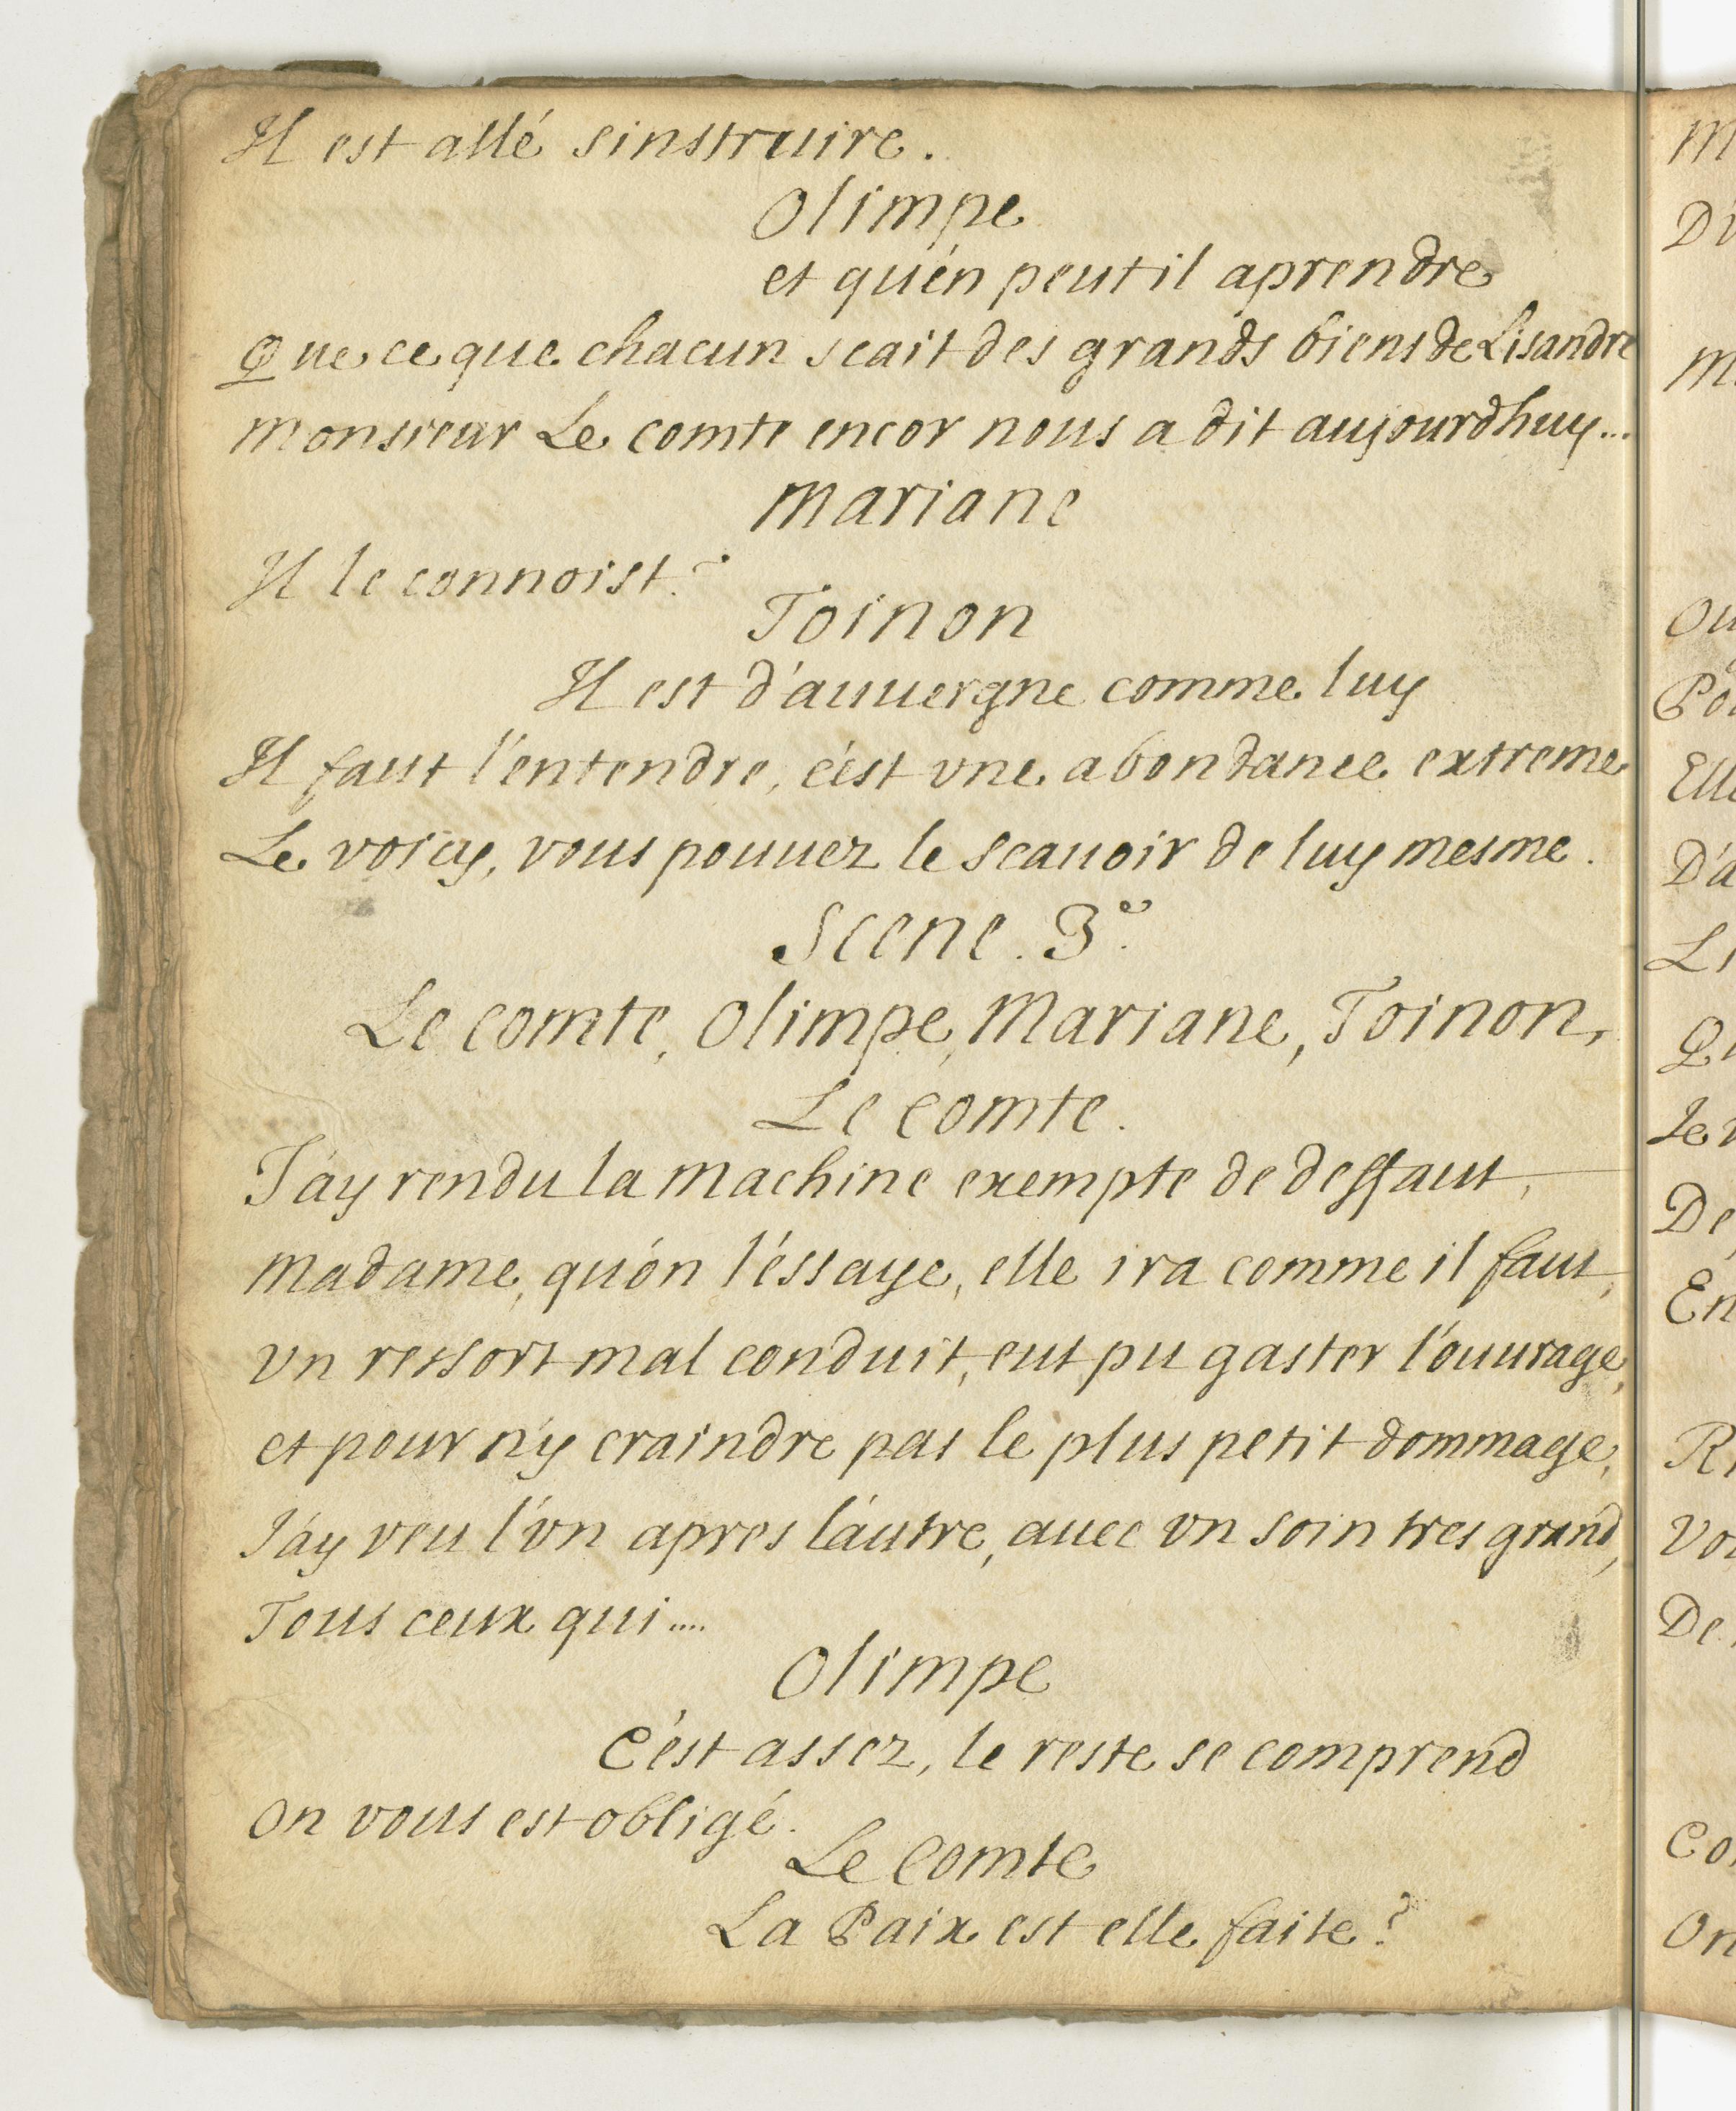 Il est allé sinstruire.
Olimpe
et qu'en peut il aprendre
Que ce que chacun scait des grands biens de Lisandre
monsieur Le comte encor nous a dit aujourdhuy...
Mariane
Il le connoist?
Toinon
Il est d'auuergne comme luy
Il faut l'entendre, c'est vne abondance extreme
Le voicy, vous pouuez le scauoir de luy mesme.
Scene. 3e.
Le comte, Olimpe, Mariane, Toinon,
Le comte.
J'ay rendu la machine exempte de deffaut,
Madame, qu'on l'essaye, elle ira comme il faut,
vn ressort mal conduit, eut pu gaster l'ouurage,
et pour n'y craindre pas le plus petit dommage,
J'ay veu l'vn apres l'autre, auec vn soin tres grand,
Tous ceux qui....
Olimpe
C'est assez, le reste se comprend
on vous est obligé.
Le Comte
La Paix est elle faite?
M
Di
M
Ou
Po
Elle
D'a
Li
Qu
De
En
Vo
De
Co
On